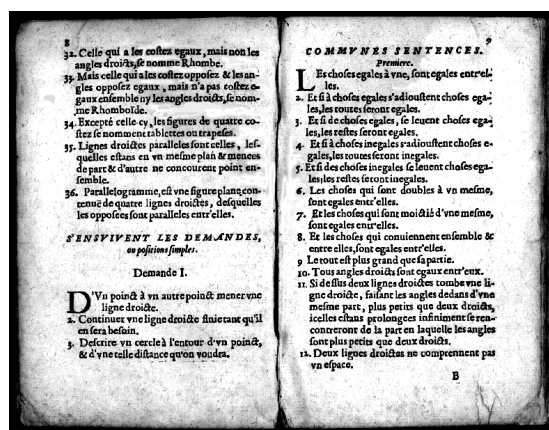 8
32. Celle qui a les costez egaux, mais non les
angles droicts, se nomme Rhombe.
33. Mais celle qui a les costez opposez & les an-
gles opposez egaux, mais n'a pas costez e-
gaux ensemble ny les angles droicts, se nom-
me Rhomboïde.
34. Excepté celle-cy, les figures de quatre co-
stez se nomment tablettes ou trapeses.
35. Lignes droictes paralleles sont celles, les-
quelles estans en vn mesme plan & menees
de part & d'autre ne concourent point en-
semble.
36. Parallelogramme, est vne figure plane, con-
tenuë de quatre lignes droictes, desquelles
les opposées sont paralleles entr'elles.
S'ENSVIVENT LES DEMANDES,
ou positions simples.
Demande I.
D'Vn poinct à vn autre poinct mener vne
ligne droicte.
2. Continuer vne ligne droicte finie tant qu'il
en sera besoin.
3. Descrire vn cercle à l'entour d'vn poinct,
& d'vne telle distance qu'on voudra.
9
COMMVNES SENTENCES.
Premiere.
LEs choses egales à vne, sont egales entr'el-
les.
2. Et si à choses egales s'adioustent choses ega-
les, les toutes seront egales.
3. Et si de choses egales, se leuent choses ega-
les, les restes seront egales.
4. Et si à choses inegales s'adioustent choses e-
gales, les toutes seront inegales.
5. Et si des choses inegales se leuent choses ega-
les, les restes seront inegales.
6. Les choses qui sont doubles à vn mesme,
sont egales entr'elles.
7. Et les choses qui sont moictié d'vne mesme,
sont egales entr'elles.
8. Et les choses qui conuiennent ensemble &
entre elles, sont egales entr'elles.
9 Le tout est plus grand que sa partie.
10. Tous angles droicts sont egaux entr'eux.
11. Si dessus deux lignes droictes tombe vne li-
gne droicte, faisant les angles dedans d'vne
mesme part, plus petits que deux droicts,
icelles estans prolongees infiniment se ren-
contreront de la part en laquelle les angles
sont plus petits que deux droicts.
12. Deux lignes droictes ne comprennent pas
vn espace.
B